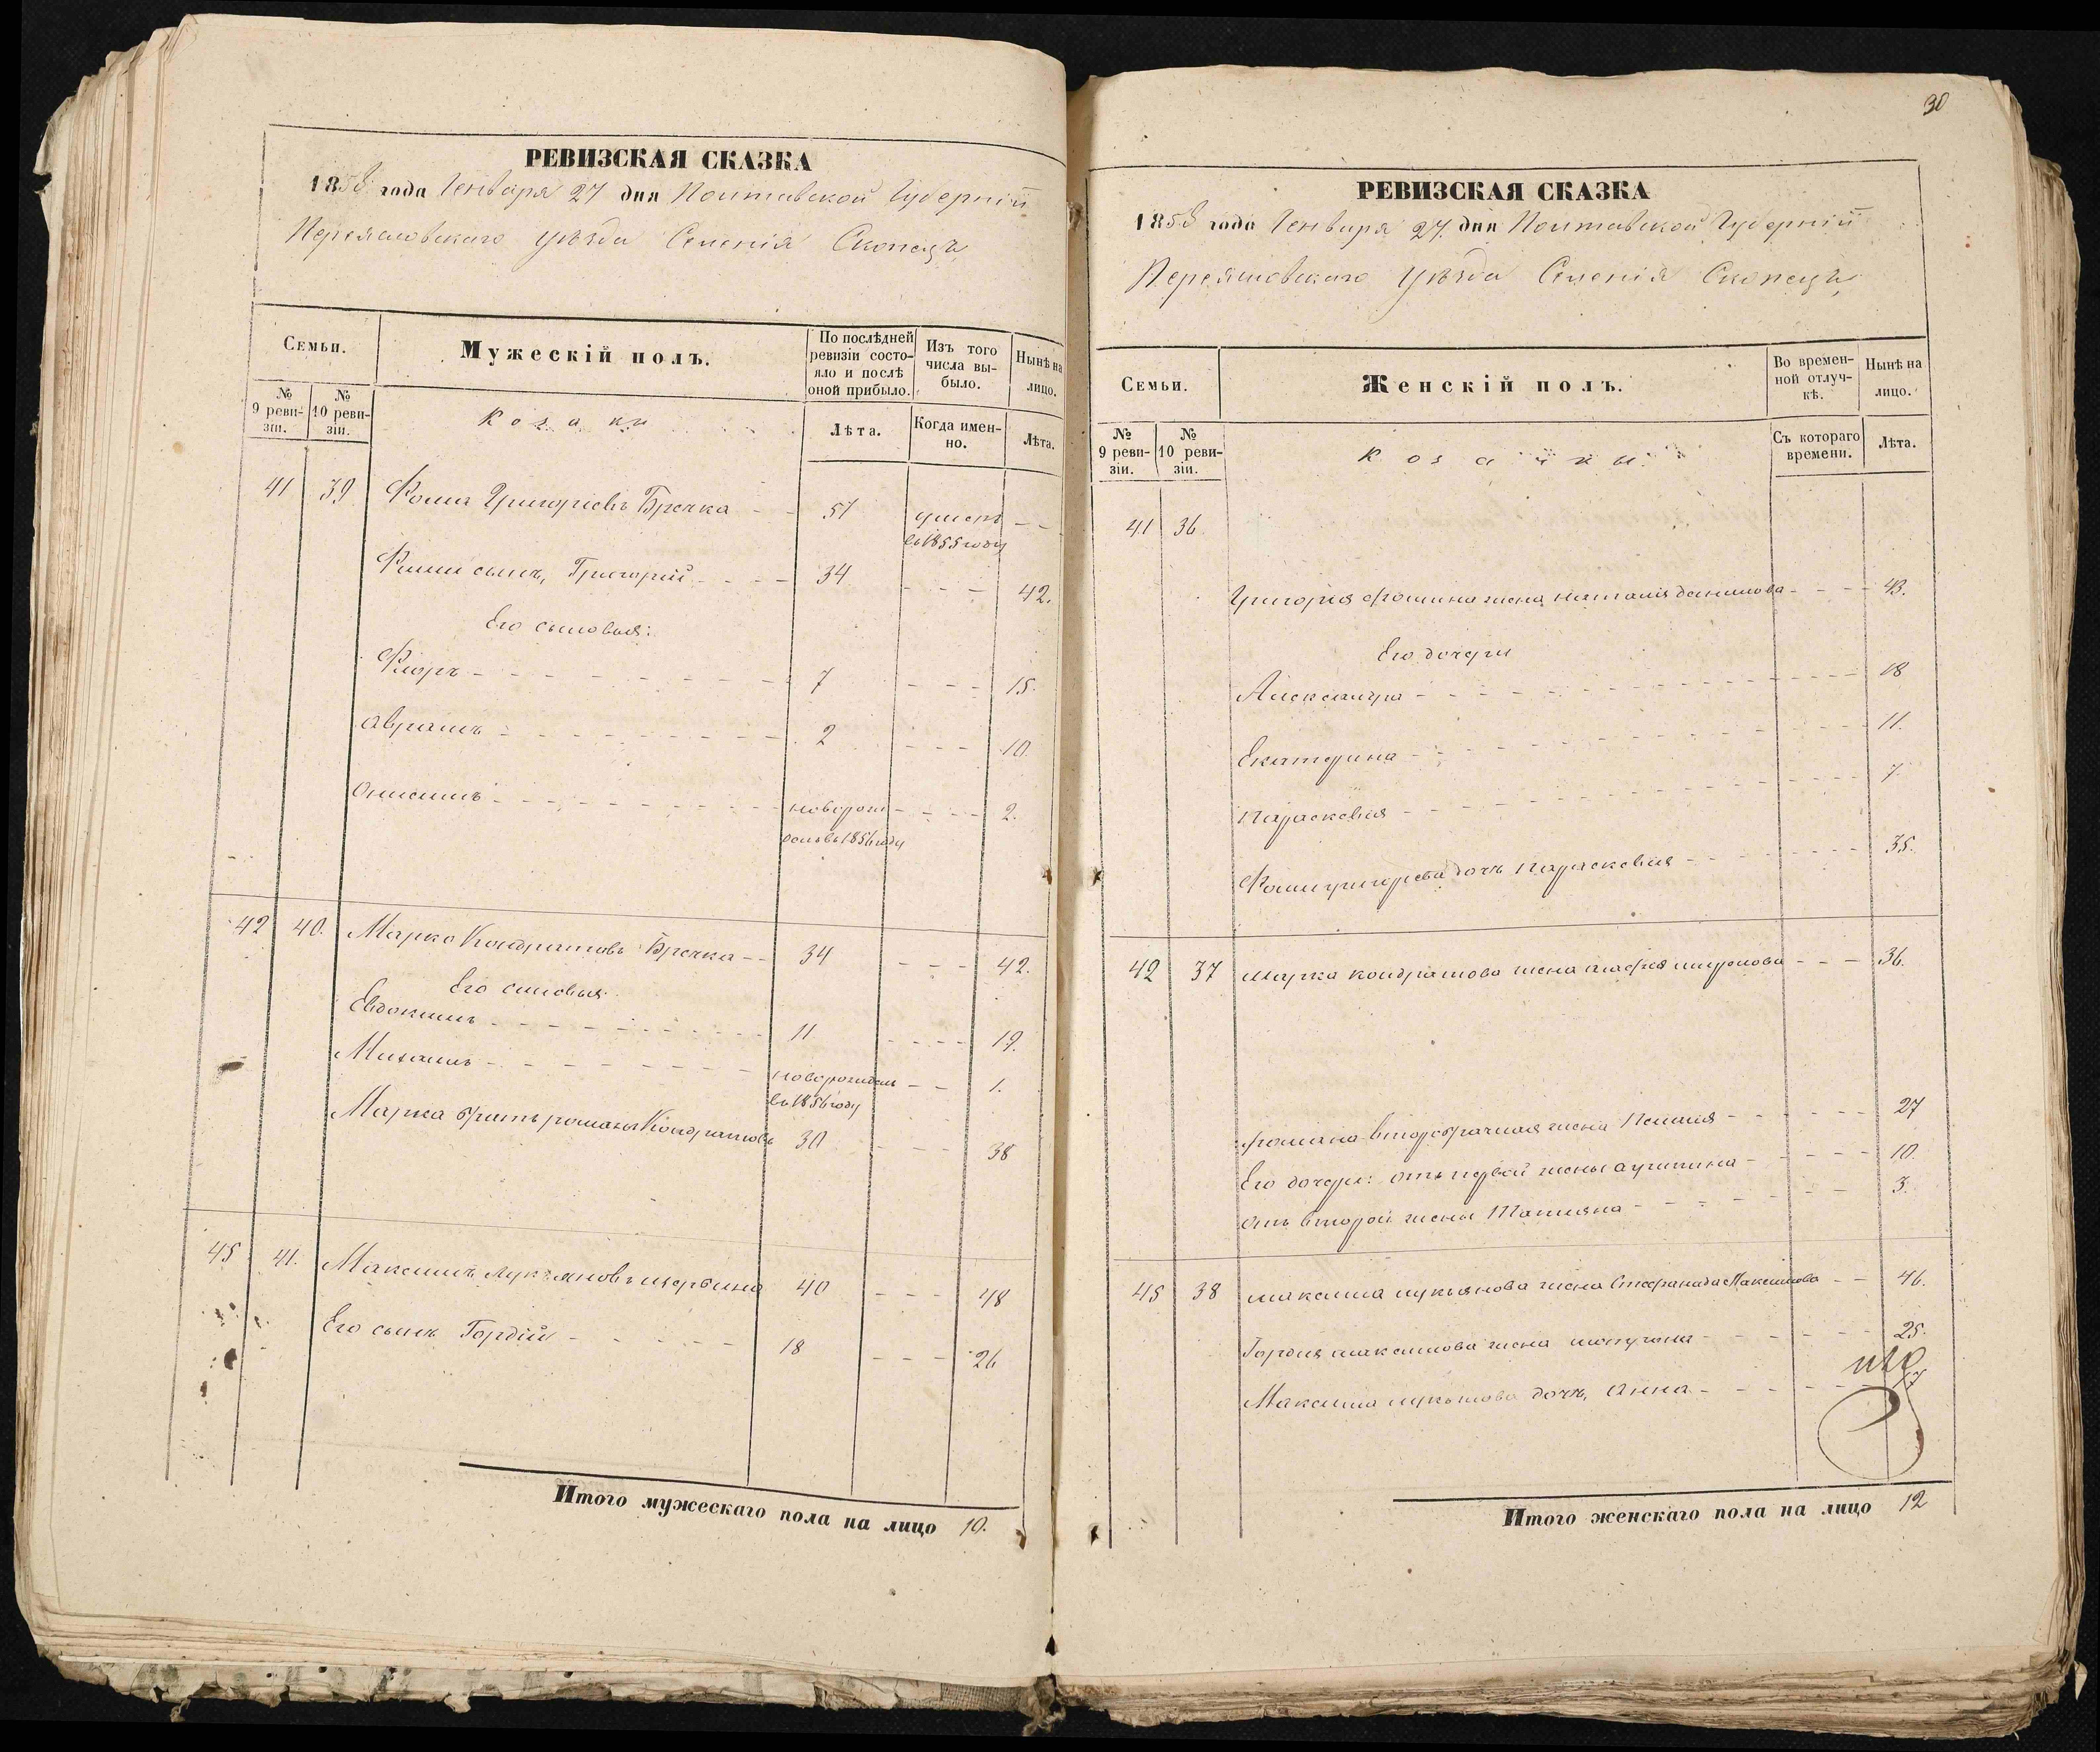 РЕВИЗСКАЯ СКАЗКА
1858 года Генваря 27 дня Полтавской Губернiи
Переяславскаго уѣзда Селенiя Скопецъ
Семьи.
Мужескiй полъ.
По послѣдней ревизiи состояло и послѣ оной прибыло.
Изъ того числа выбыло.
Нынѣ на лицо.
№ 9 ревизiи.
№ 10 ревизiи.
Козаки
Лѣта.
Когда именно.
Лѣта.
41 39 Фома Григорiевъ Бречка - - 51 умеръ - -
въ 1855 году
Фомы сынъ, Григорiй - - - - 34 - - - 42.
Его сыновья:
Флоръ - - - 7 - - - 15.
Аврамъ - - - 2 - - - 10.
Онисимъ - - - новорож - - - 2.
денъ въ 1856 году
42 40. Марко Кондратовъ Бречка - - 34 - - - 42.
Его сыновья
Евдокимъ - - - 11 - - - 19.
Михаилъ - - - новорожденъ - - 1.
въ 1856 году
Марка братъ романъ Кондратовъ 30 - - - 38
45 41. Максимъ Лукьяновъ щербина 40 - - - 48
Его сынъ Гордiй - - - 18 - - - 26
Итого мужескаго пола на лицо 10.
30
РЕВИЗСКАЯ СКАЗКА
1858 года Генваря 27. дня Полтавской Губернiи
Переяславскаго Уѣзда Селенiя Скопецъ
Семьи.
Женскiй полъ.
Во временной отлучкѣ.
Нынѣ на лицо.
№ 9 ревизiи.
№ 10 ревизiи.
Козачки
Съ котораго времени.
Лѣта.
41 36.
Григорiя Фомина жена наталiя данилова - - - - 43.
Его дочери
Александра - - - 18
Екатерина - - - 11.
Параскевiя - - - 7.
Фомы григорьева дочь Параскевiя - - - 35.
42 37 Марка кондратова жена миронова - - - 36.
романа второбрачная жена - - - 27
Его дочери: отъ первой жены - - - 10.
отъ второй жены Татiяна - - - 3.
45 38 максима лукьянова жена Стефанида Максимова - - 46.
Гордiя максимова жена - - - 25.
Максима лукьянова дочь, Анна - - - 17
Итого женскаго пола на лицо 12